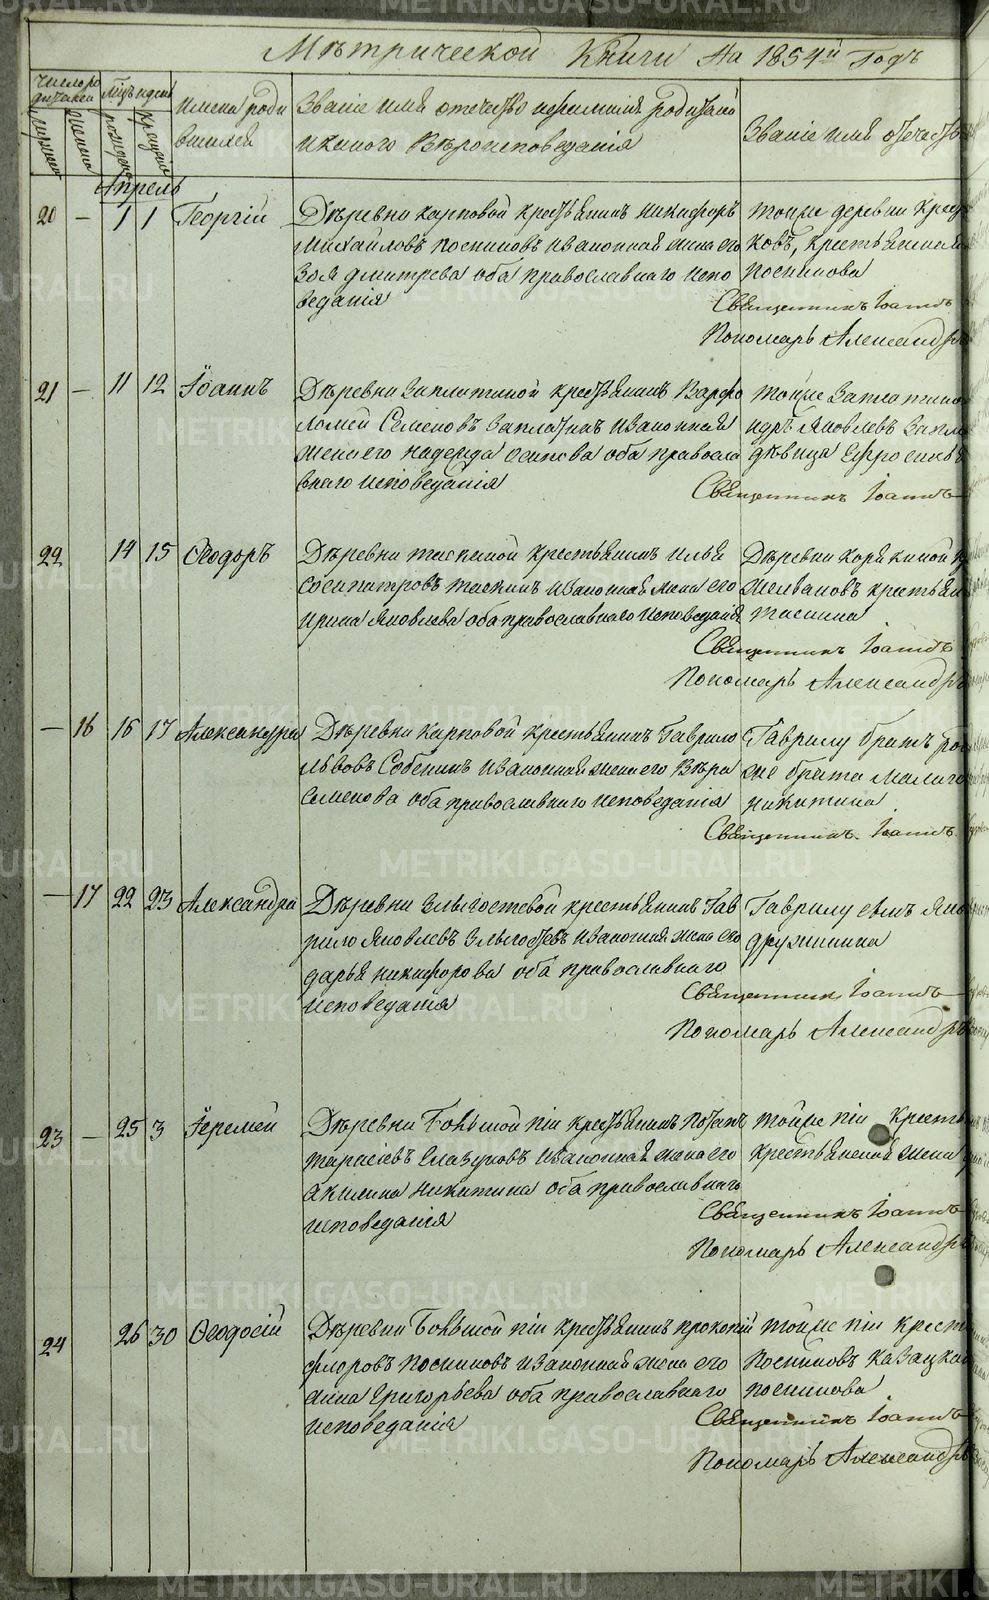 Мѣтрической Книги на 1854й Годъ
Число родившихся
Мѣсяцъ и день
Имена родившихся
Званіе имя отечество и фамилія родителей
и какого Вѣроисповѣданія
Званіе имя отечество
мужеска
женска
рожденія
крещенія
Апрѣль
20 — 1 1 Георгій
Дѣревни карповой крестьянинъ никифоръ
Михайловъ Посниковъ и законная жена его
Зоя дмитрева оба православнаго испо
веданія
тойже деревни крес
ковъ, крестьянская
Посникова
Священникъ Іоаннъ
Пономарь Александръ
21 — 11 12 Іоаннъ
Дѣревни Заплатиной крестьянинъ Варфо
ломей Семеновъ Заплатинъ и законная
жена его надежда осипова оба правосла
внаго исповеданія
тойже Заплатино
ндръ Яковлевъ Запла
дѣвица Ефросинья
Священникъ Іоаннъ
22 14 15 Ѳеодоръ
Дѣревни таскиной крестьянинъ Илья
Сосипатровъ таскинъ и законная жена его
ирина Яковлева оба православнаго исповеданія
Дѣревни корякиной к
Желвановъ крестьян
таскина
Священникъ Іоаннъ
Пономарь Александръ
— 16 16 17 Александра
Дѣревни карповой крестьянинъ Гаврило
Львовъ Собенинъ и законная жена его Вѣра
Семенова оба православнаго исповеданія
Гаврилу братъ ро
же брата малаго
никитина
Священникъ Іоаннъ
— 17 22 23 Александра
Дѣревни Злыгостевой крестьянинъ Гав
рило Яковлевъ Злыгостевъ и законная жена его
дарья никифорова оба православнаго
исповеданія
Гаврилу сынъ Яко
дружинина
Священникъ Іоаннъ
Пономарь Александръ
23 — 25 3 Іеремей
Дѣревни Большой піи крестьянинъ Потапъ
тарасіевъ Глазуновъ и законная жена его
акилина никитина оба православнаго
исповеданія
тойже піи кресть
крестьянской жена
Священникъ Іоаннъ
Пономарь Александръ
24 26 30 Ѳеодосій
Дѣревни Большой піи крестьянинъ прокопій
флоровъ Посниковъ и законная жена его
анна григорьева оба православнаго
исповеданія
тойже піи крест
Посниковъ казацкая
посникова
Священникъ Іоаннъ
Пономарь Александръ
METRIKI.GASO-URAL.RU